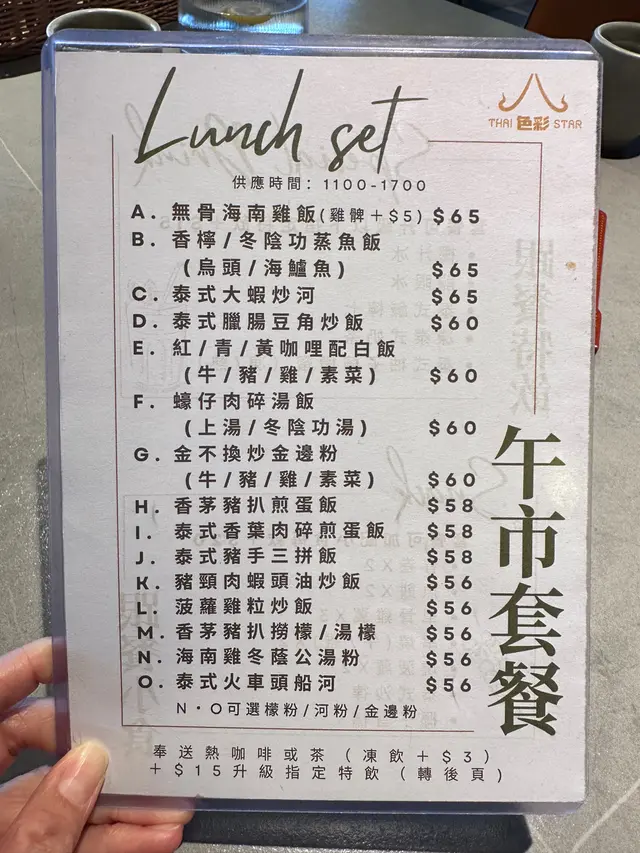 Lunch set
THAI 色彩 STAR
供應時間：1100-1700
A. 無骨海南雞飯(雞髀+$5) $65
B. 香檸/冬陰功蒸魚飯
(烏頭/海鱸魚) $65
C. 泰式大蝦炒河 $65
D. 泰式臘腸豆角炒飯 $60
E. 紅/青/黃咖哩配白飯
(牛/豬/雞/素菜) $60
F. 蠔仔肉碎湯飯
(上湯/冬陰功湯) $60
G. 金不換炒金邊粉
(牛/豬/雞/素菜) $60
H. 香茅豬扒煎蛋飯 $58
I. 泰式香葉肉碎煎蛋飯 $58
J. 泰式豬手三拼飯 $58
K. 豬頸肉蝦頭油炒飯 $56
L. 菠蘿雞粒炒飯 $56
M. 香茅豬扒撈檬/湯檬 $56
N. 海南雞冬蔭公湯粉 $56
O. 泰式火車頭船河 $56
N·O可選檬粉/河粉/金邊粉
午市套餐
奉送熱咖啡或茶（凍飲+$3）
+$15升級指定特飲（轉後頁）